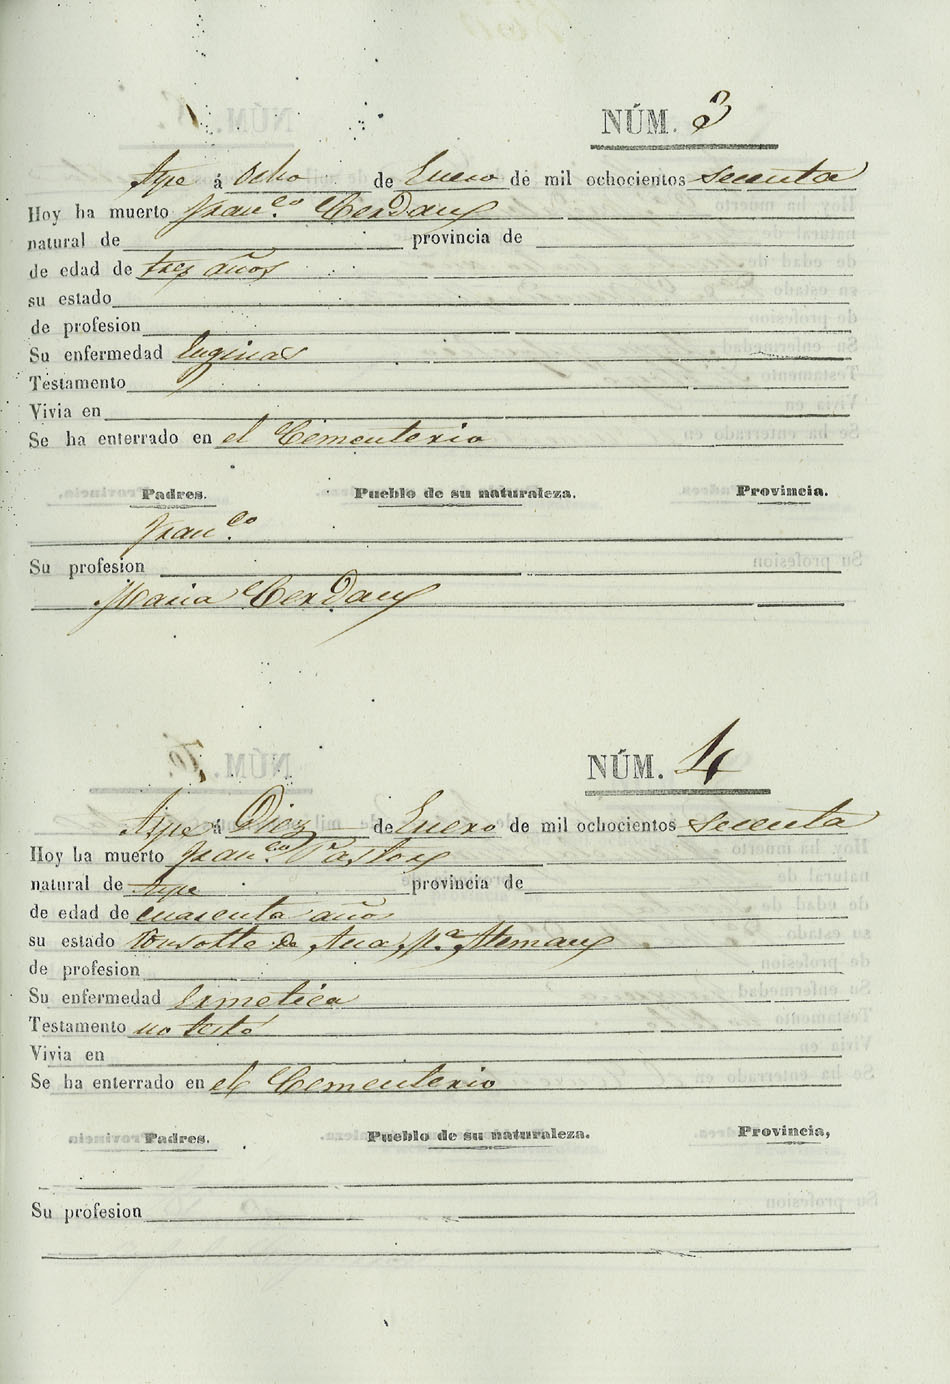 NÚM. 3
Aspe á ocho de Enero de mil ochocientos secenta
Hoy ha muerto Fran.co Cerdan
natural de provincia de
de edad de tres años
su estado
de profesion
Su enfermedad Enginas
Testamento
Vivia en
Se ha enterrado en el Cementerio
Padres. Pueblo de su naturaleza. Provincia.
Fran.co
Su profesion
Maria Cerdan
NÚM. 4
Aspe á Diez de Enero de mil ochocientos secenta
Hoy ha muerto Fran.co Pastor
natural de Aspe provincia de
de edad de cuarenta años
su estado de Ana M.a Aleman
de profesion
Su enfermedad
Testamento no testó
Vivia en
Se ha enterrado en el Cementerio
Padres. Pueblo de su naturaleza. Provincia,
Su profesion